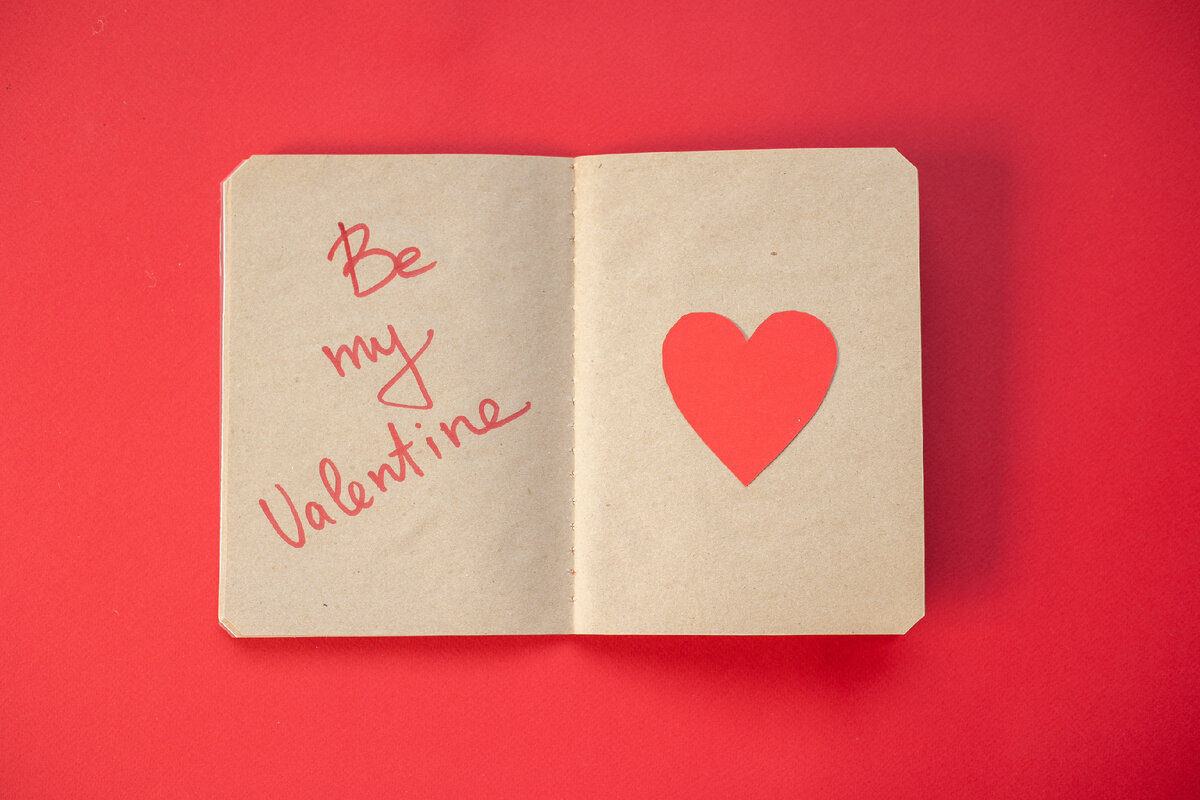 Be
my
Valentine